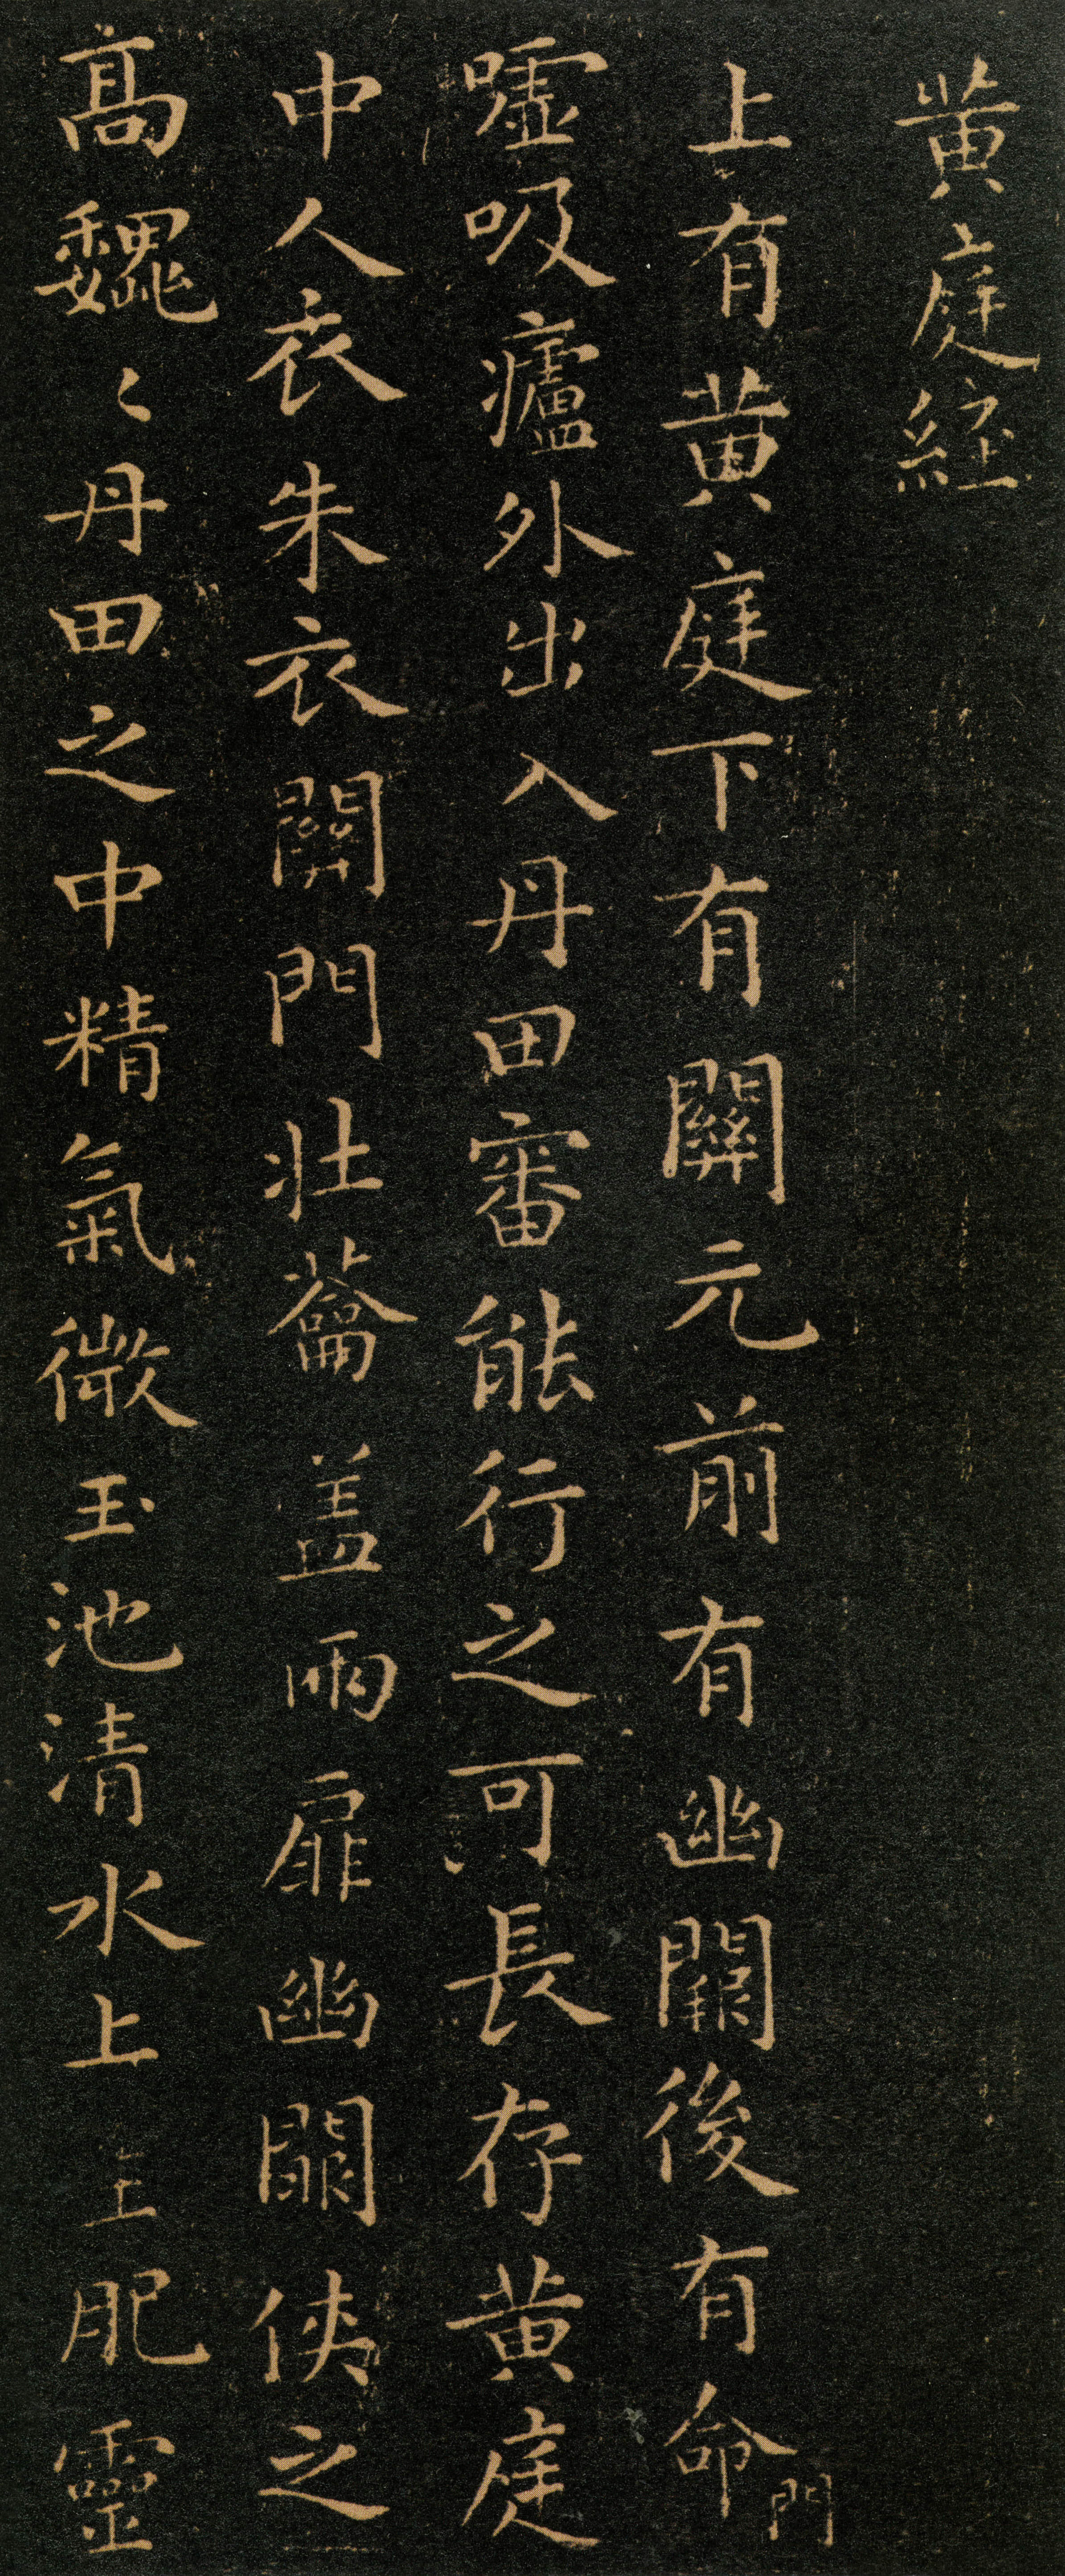 黄庭經
上有黄庭下有關元前有幽闕後有命門
嘘吸廬外出入丹田審能行之可長存黄庭
中人衣朱衣關門壯蘥盖兩扉幽闕俠之
高巍〻丹田之中精氣微玉池清水上生肥靈